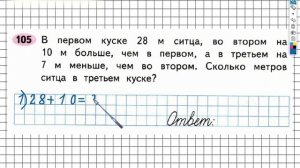 105 В первом куске 28 м ситца, во втором на
10 м больше, чем в первом, а в третьем на
7 м меньше, чем во втором. Сколько метров
ситца в третьем куске?
1) 28+10=
Ответ: